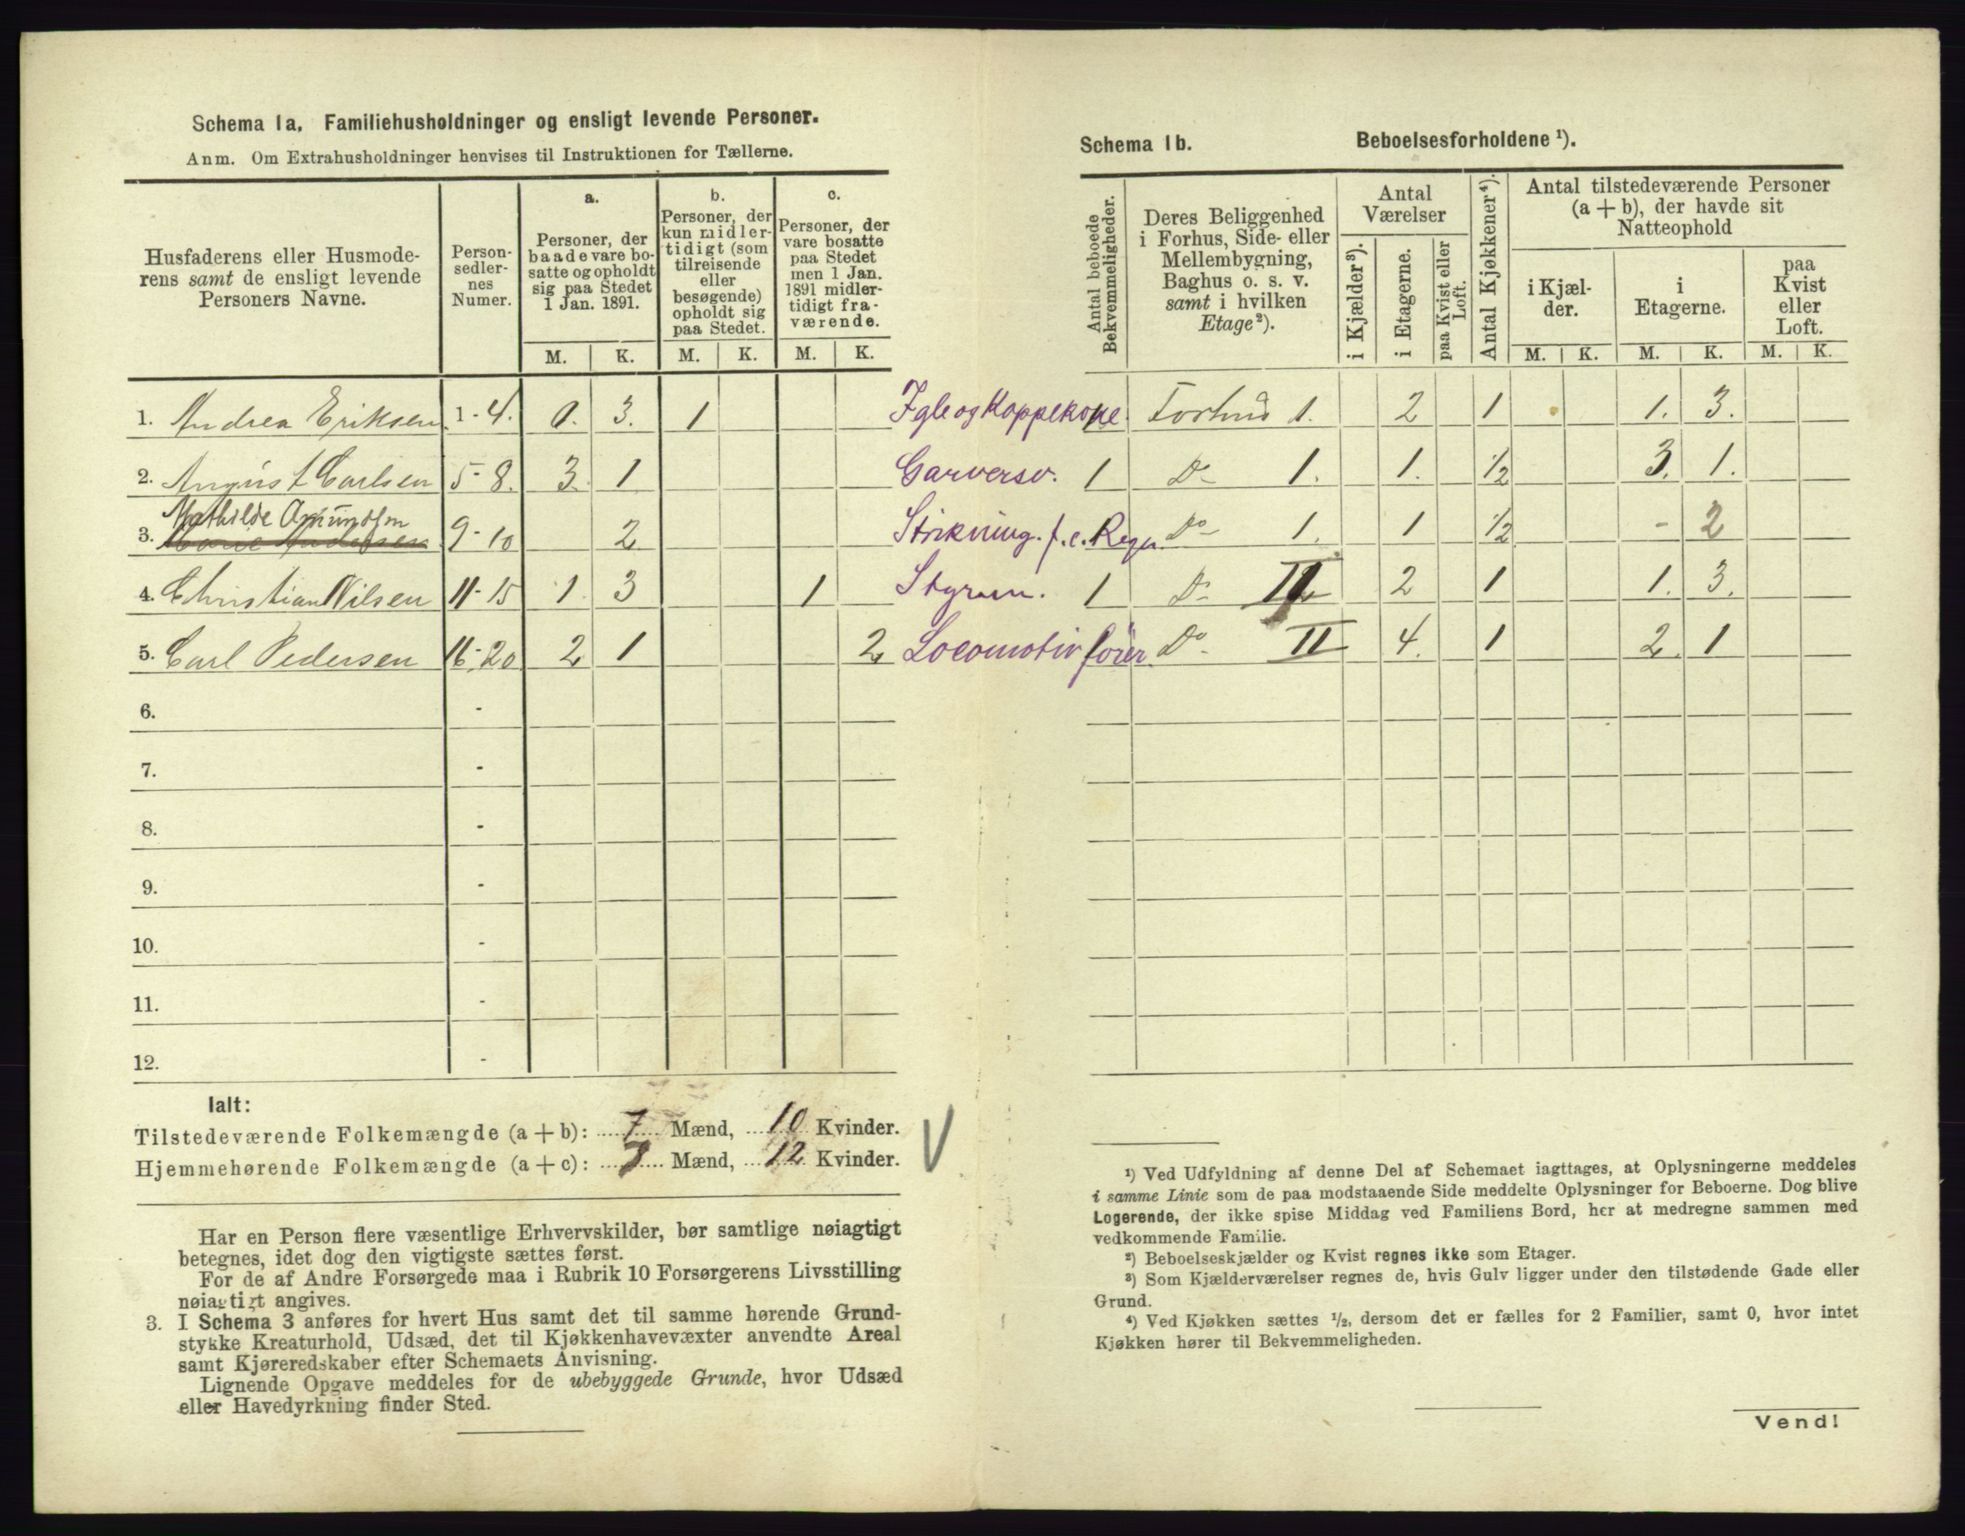 Schema 1a. Familiehusholdninger og ensligt levende Personer.
Anm. Om Extrahusholdninger henvises til Instruktionen for Tællerne.
Husfaderens eller Husmoderens samt de ensligt levende Personers Navne.
Person-sedlernes Numer.
a.
Personer, der baade vare bosatte og opholdt sig paa Stedet 1 Jan. 1891.
b.
Personer, der kun midlertidigt (som tilreisende eller besøgende) opholdt sig paa Stedet.
c.
Personer, der vare bosatte paa Stedet men 1 Jan. 1891 midlertidigt fraværende.
M. K. M. K. M. K.
1. Andrea Eriksen 1-4. 0. 3. 1
2. August Carlsen 5-8. 3 1
Mathilde Amundsen
3. Marie Andersen 9-10 2
4. Christian Nilsen 11-15 1 3 1
5. Carl Pedersen 16-20 2 1 2
6. -
7. -
8. -
9. -
10. -
11. -
12. -
Ialt:
Tilstedeværende Folkemængde (a + b): 7 Mænd, 10 Kvinder.
Hjemmehørende Folkemængde (a + c): 7 Mænd, 12 Kvinder.
V
Har en Person flere væsentlige Erhvervskilder, bør samtlige nøiagtigt
betegnes, idet dog den vigtigste sættes først.
For de af Andre Forsørgede maa i Rubrik 10 Forsørgerens Livsstilling
nøiagtigt angives.
3. I Schema 3 anføres for hvert Hus samt det til samme hørende Grund-
stykke Kreaturhold, Udsæd, det til Kjøkkenhavevæxter anvendte Areal
samt Kjøreredskaber efter Schemaets Anvisning.
Lignende Opgave meddeles for de ubebyggede Grunde, hvor Udsæd
eller Havedyrkning finder Sted.
Schema 1b. Beboelsesforholdene ¹).
Antal beboede Bekvemmeligheder.
Deres Beliggenhed i Forhus, Side- eller Mellembygning, Baghus o. s. v. samt i hvilken Etage²).
Antal Værelser
i Kjælder³).
i Etagerne.
paa Kvist eller Loft.
Antal Kjøkkener⁴).
Antal tilstedeværende Personer (a + b), der havde sit Natteophold
i Kjælder.
i Etagerne.
paa Kvist eller Loft.
M. K. M. K. M. K.
Igle og Koppekone 1 Forhus 1. 2 1 1. 3.
Garversv. 1 Do 1. 1. 1/2 3. 1.
Strikning. f. e. Regn. Do 1. 1 1/2 - 2
Styrm. 1 Do II 2 1 1. 3.
Locomotivfører Do II 4. 1 2. 1
¹) Ved Udfyldning af denne Del af Schemaet iagttages, at Oplysningerne meddeles
i samme Linie som de paa modstaaende Side meddelte Oplysninger for Beboerne. Dog blive
Logerende, der ikke spise Middag ved Familiens Bord, her at medregne sammen med
vedkommende Familie.
²) Beboelseskjælder og Kvist regnes ikke som Etager.
³) Som Kjælderværelser regnes de, hvis Gulv ligger under den tilstødende Gade eller
Grund.
⁴) Ved Kjøkken sættes ½, dersom det er fælles for 2 Familier, samt 0, hvor intet
Kjøkken hører til Bekvemmeligheden.
Vend!